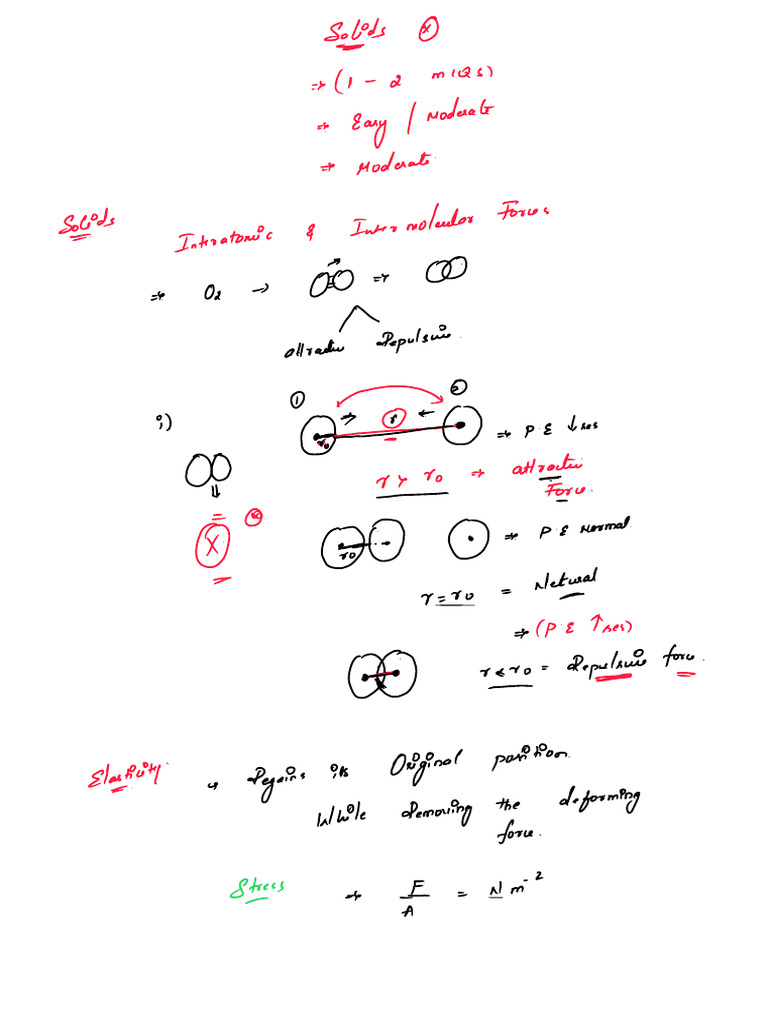 Solids ⓧ
⇒ (1 - 2 MCQs)
⇒ Easy / Moderate
⇒ Moderate
Solids
Interatomic & Intermolecular Forces
⇒ O2 → ⇒
attractive Repulsive
① ②
i)
r
r0
⇒ P.E ↓ses
r > r0 ⇒ attractive
Force.
X
r0
⇒ P.E normal
r = r0 = Netural
⇒ (P.E ↑ses)
r < r0 = Repulsive force.
Elasticity
↳ Regains its Original position
While Removing the deforming
force.
Stress → F/A = N m⁻²